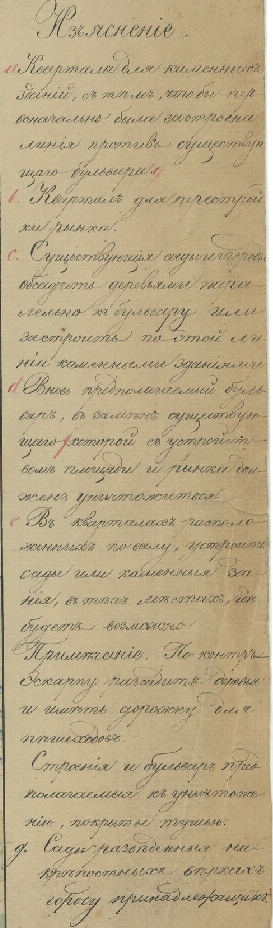 Изъясненіе.
a Квартала для каменныхъ
зданій, съ тѣмъ, чтобы пер
воначально была застроена
линія противъ существую
щаго бульвара
b. Кварталъ для перестрой
ки рынка.
c. Существующія сады
обсадить деревьями пара
лельно къ бульвару или
застроить по этой ли
ніи каменными зданіями
d Вновь предполагаемый буль
варъ, въ замѣнъ существую
щаго, которой съ устройст
вомъ площади и рынка дол
женъ уничтожиться
e Въ кварталахъ располо
женныхъ по валу, устроить
сады или каменныя зда
нія, въ тѣхъ мѣстахъ, гдѣ
будетъ возможно
Примѣчаніе. По контръ
эскарпу разсадить деревья
и имѣть дорожку для
пѣшеходовъ.
Строенія и бульваръ пред
полагаемыя къ уничтоже
нію, покрыты тушью.
g. Сады разведенныя на
крѣпостныхъ веркахъ
городу принадлежащихъ.